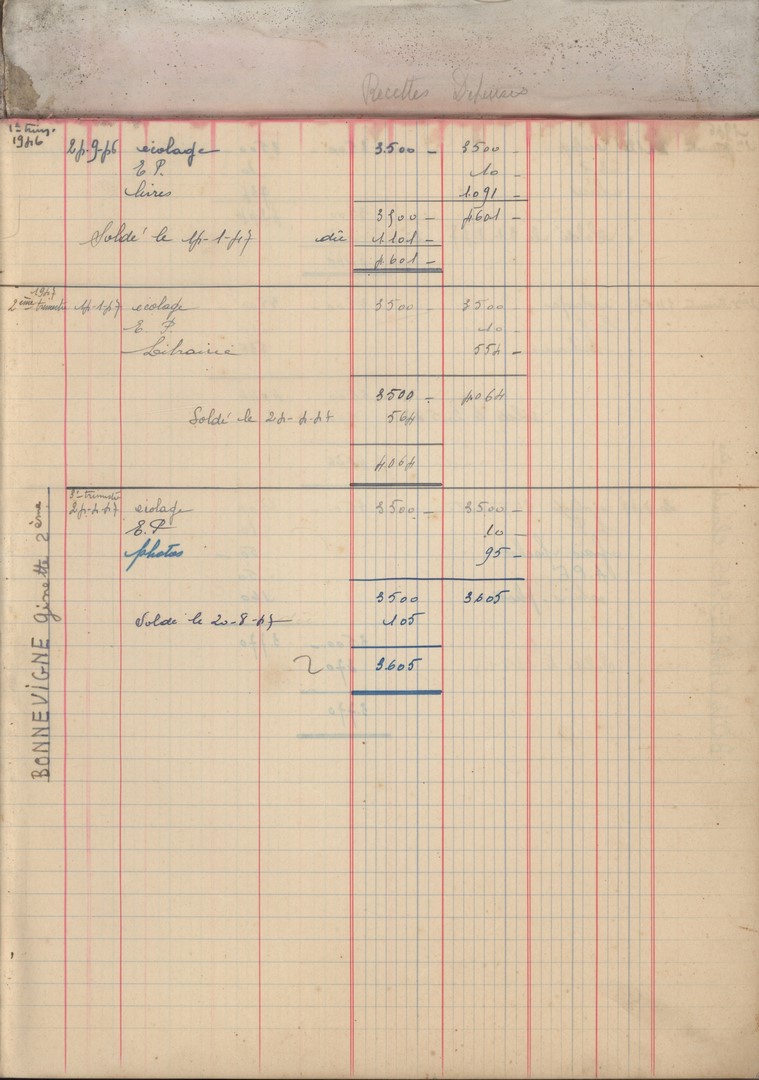 Recettes Dépenses
1er trim.
1946
24-9-46 écolage 3.500 - 3500 -
E P. 10 -
livres 1.091 -
3500 - 4601 -
Soldé le 14-1-47 dû 1.101 -
4.601 -
1947
2ème trimestre 14-1-47 écolage 3500 - 3500 -
E P. 10 -
Librairie 554 -
3500 - 4064
Soldé le 24-4-47 564
4064
3e trimestre
24-4-47 écolage 3500 - 3500 -
E.P 10 -
photos 95 -
3500 3.605
Soldé le 20-8-47 105
3.605
BONNEVIGNE Ginette 2ème